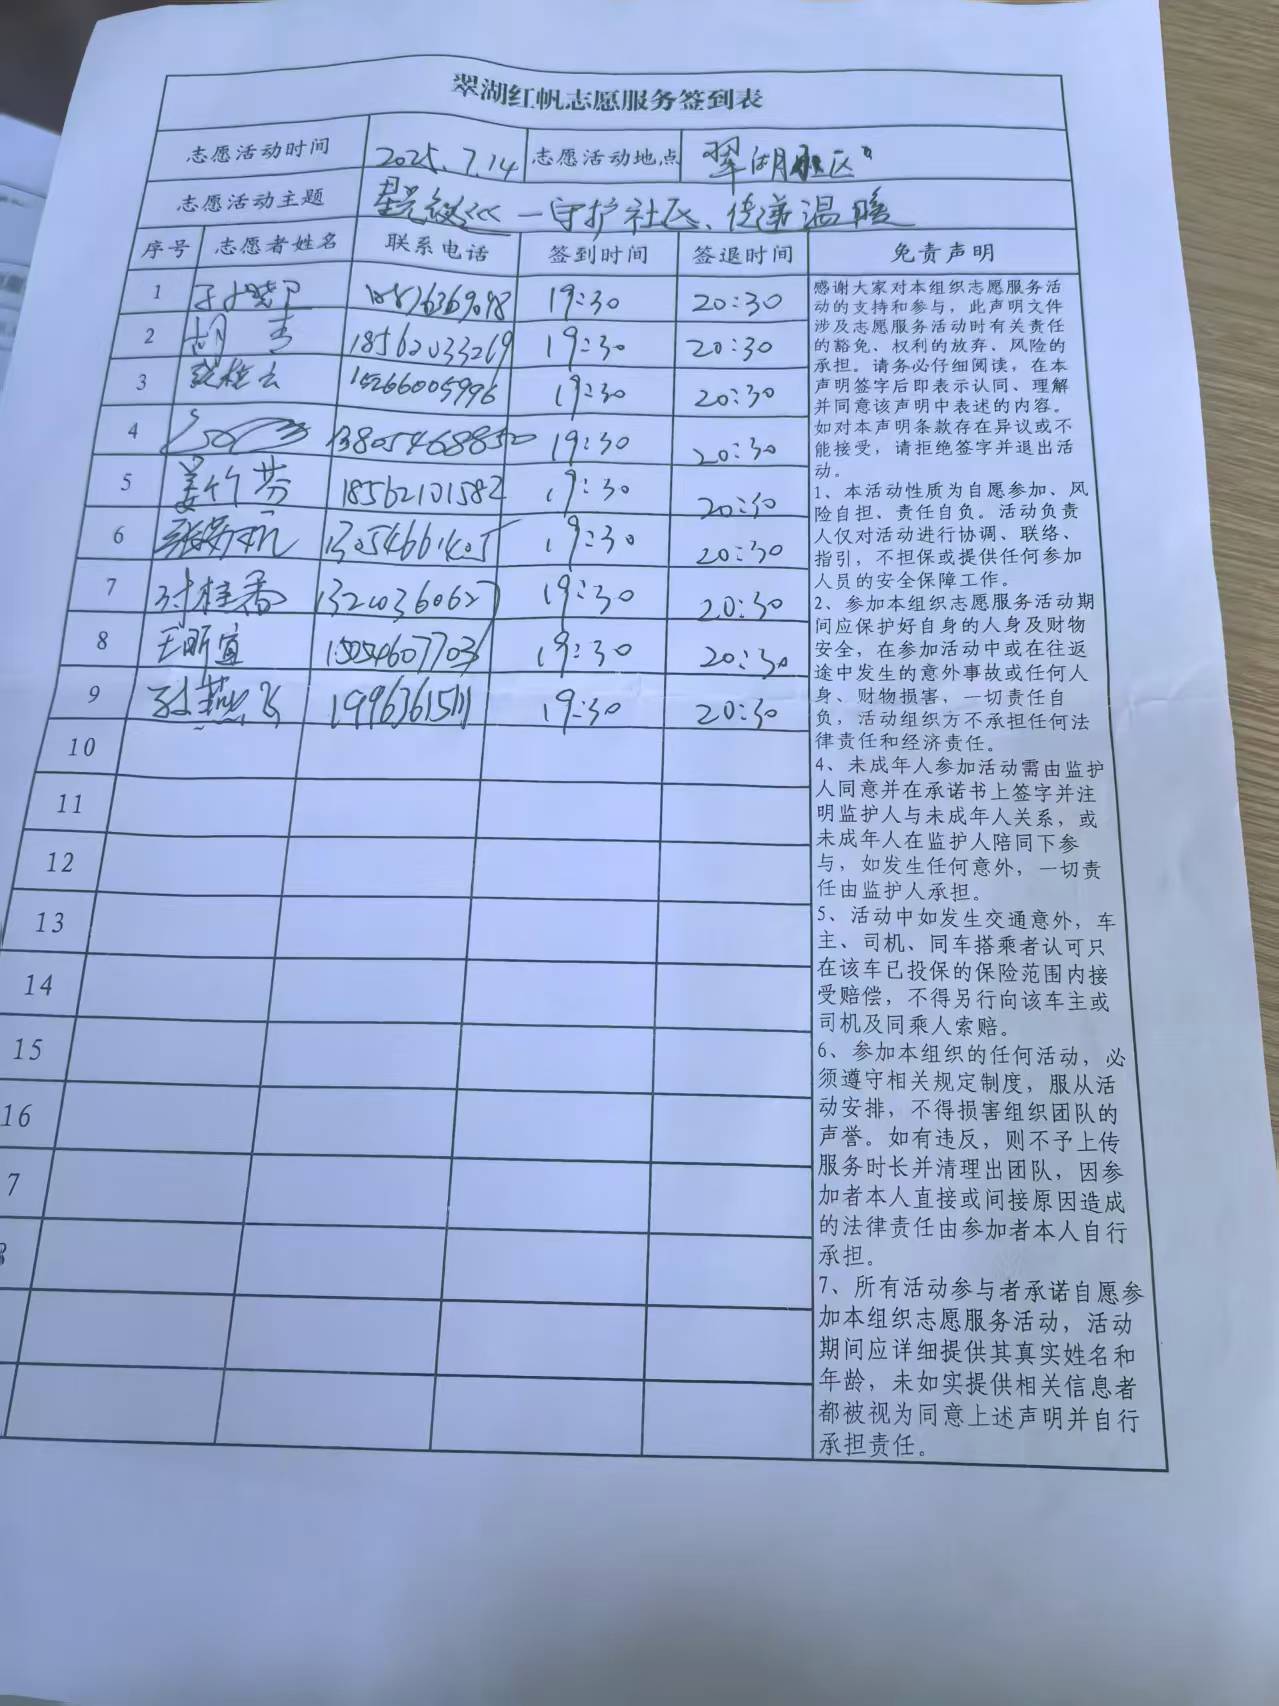 翠湖红帆志愿服务签到表
志愿活动时间 2025.7.14 志愿活动地点 翠湖社区
志愿活动主题 守护社区、传递温暖
序号 志愿者姓名 联系电话 签到时间 签退时间 免责声明
1 19:30 20:30
2 胡 18562033269 19:30 20:30
3 15266005996 19:30 20:30
4 19:30 20:30
5 姜竹芬 18562101582 19:30 20:30
6 13054661405 19:30 20:30
7 桂香 19:30 20:30
8 王昕宜 15054607703 19:30 20:30
9 19:30 20:30
10
11
12
13
14
15
16
7
感谢大家对本组织志愿服务活
动的支持和参与，此声明文件
涉及志愿服务活动时有关责任
的豁免、权利的放弃、风险的
承担。请务必仔细阅读，在本
声明签字后即表示认同、理解
并同意该声明中表述的内容。
如对本声明条款存在异议或不
能接受，请拒绝签字并退出活
动。
1、本活动性质为自愿参加、风
险自担、责任自负。活动负责
人仅对活动进行协调、联络、
指引，不担保或提供任何参加
人员的安全保障工作。
2、参加本组织志愿服务活动期
间应保护好自身的人身及财物
安全，在参加活动中或在往返
途中发生的意外事故或任何人
身、财物损害，一切责任自
负，活动组织方不承担任何法
律责任和经济责任。
4、未成年人参加活动需由监护
人同意并在承诺书上签字并注
明监护人与未成年人关系，或
未成年人在监护人陪同下参
与，如发生任何意外，一切责
任由监护人承担。
5、活动中如发生交通意外，车
主、司机、同车搭乘者认可只
在该车已投保的保险范围内接
受赔偿，不得另行向该车主或
司机及同乘人索赔。
6、参加本组织的任何活动，必
须遵守相关规定制度，服从活
动安排，不得损害组织团队的
声誉。如有违反，则不予上传
服务时长并清理出团队，因参
加者本人直接或间接原因造成
的法律责任由参加者本人自行
承担。
7、所有活动参与者承诺自愿参
加本组织志愿服务活动，活动
期间应详细提供其真实姓名和
年龄，未如实提供相关信息者
都被视为同意上述声明并自行
承担责任。